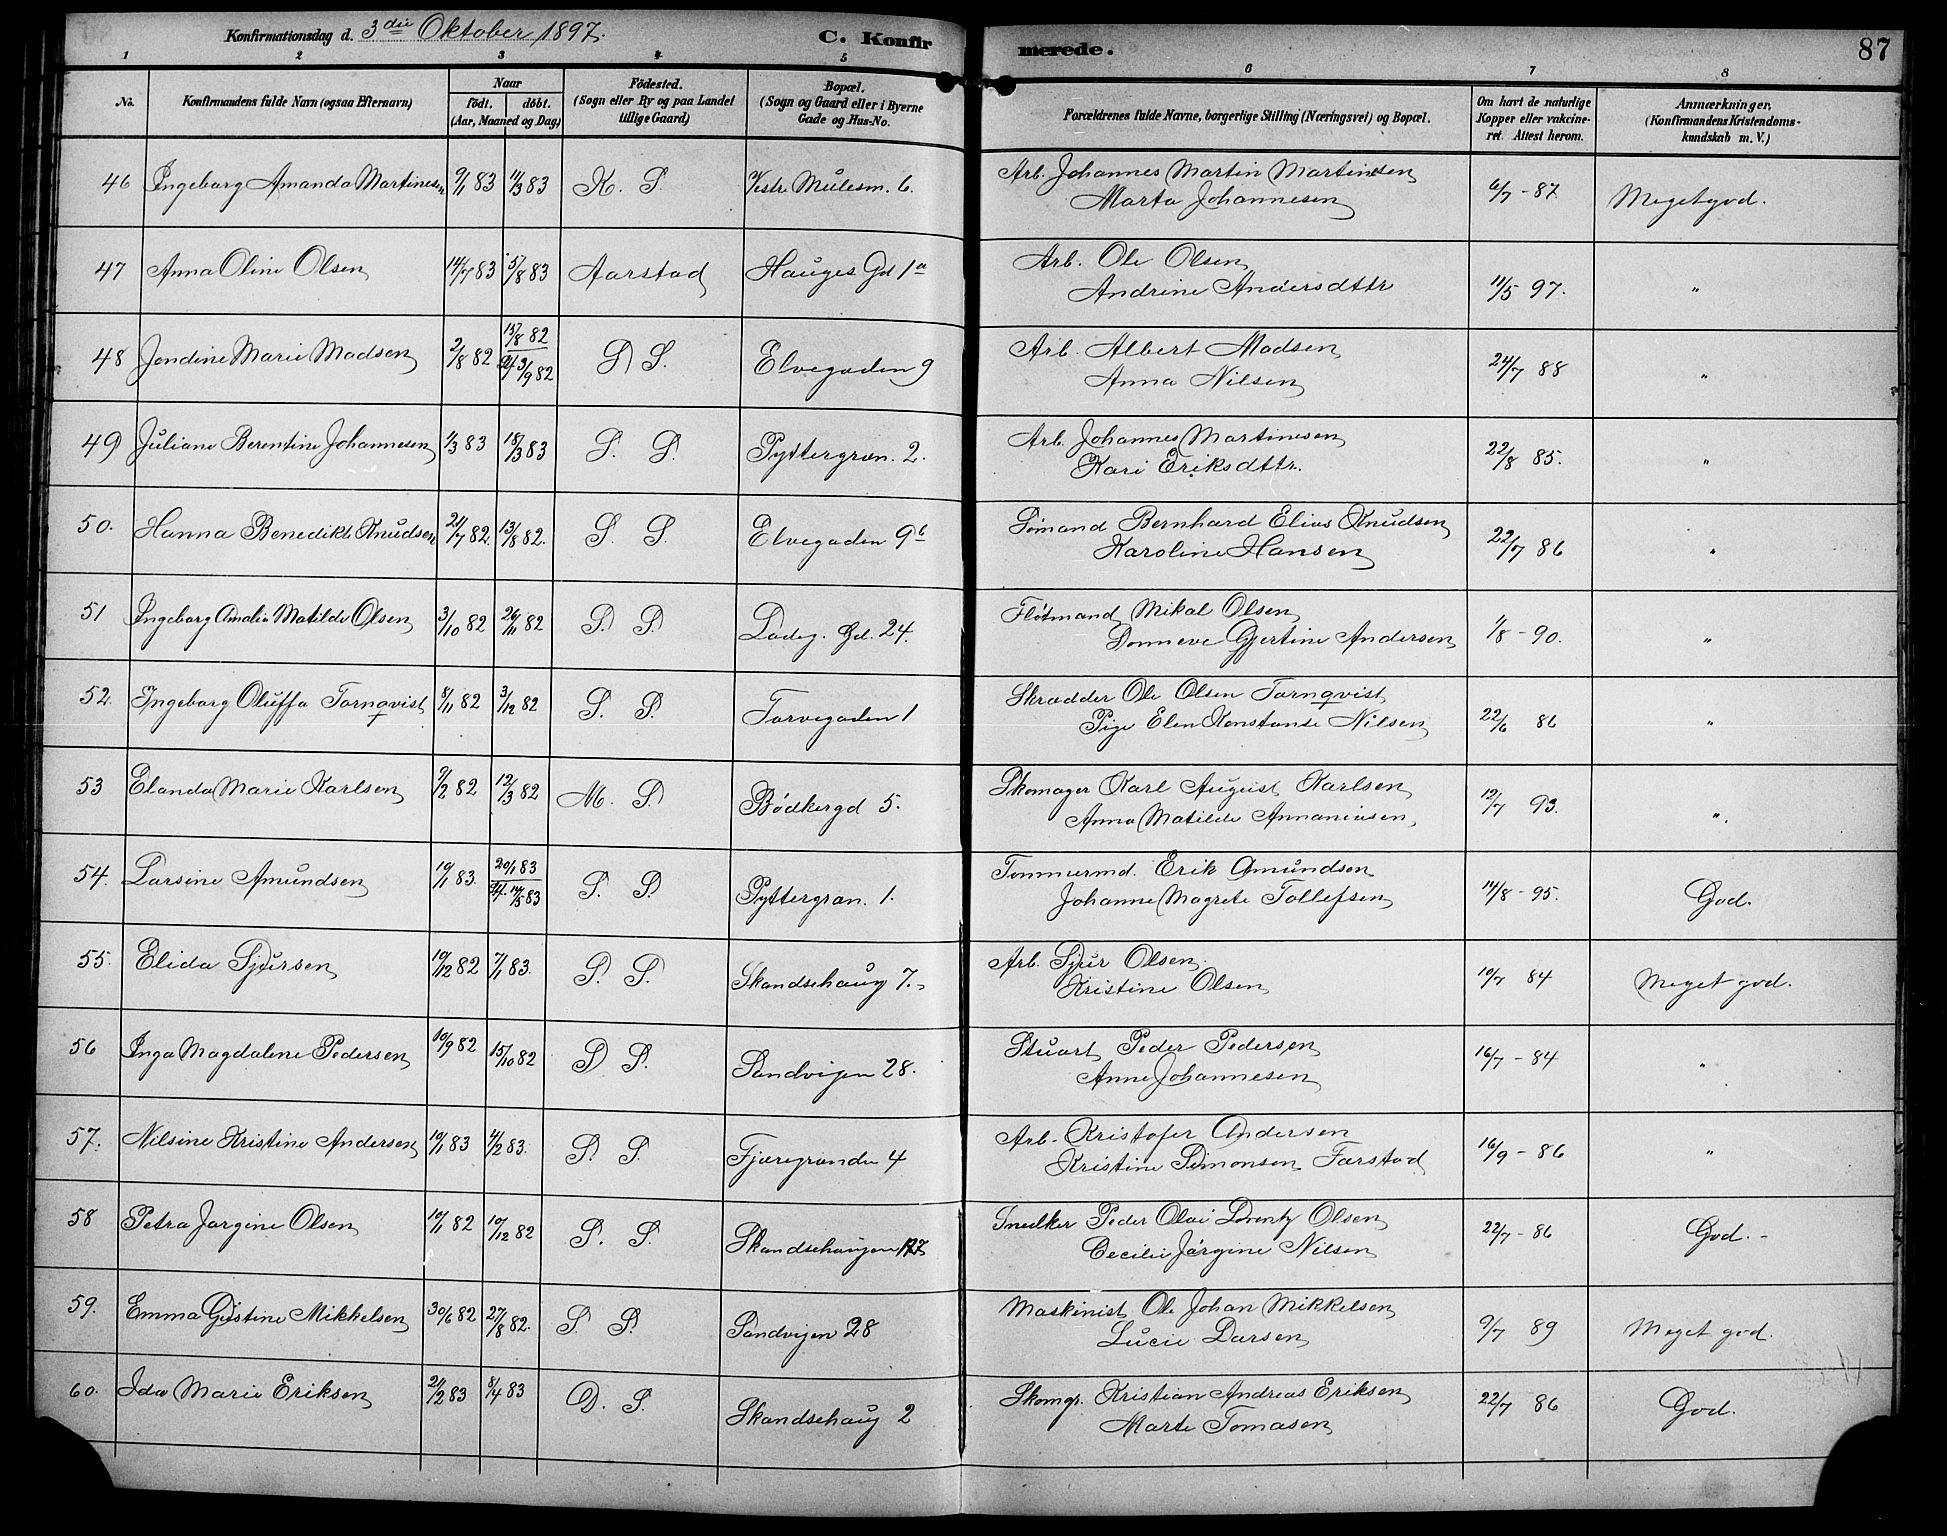 Konfirmationsdag d. 3die Oktober 1897. C. Konfirmerede. 87
1 2 3 4 5 6 7 8
No. Konfirmandens fulde Navn (ogsaa Efternavn) Naar født. døbt. (Aar, Maaned og Dag) Födested. (Sogn eller By og paa Landet tillige Gaard) Bopæl. (Sogn og Gaard eller i Byerne Gade og Hus-No. Forældrenes fulde Navne, borgerlige Stilling (Næringsvei) og Bopæl. Om havt de naturlige Kopper eller vakcineret. Attest herom. Anmærkninger, (Konfirmandens Kristendomskundskab m. V.)
46 Ingeborg Amanda Martinesen 9/1 83 11/3 83 K. S. Vestr Mulesm. 6. Arb. Johannes Martin Martinesen 6/7 - 87 Meget god.
Marta Johannesen
47 Anna Oline Olsen 14/7 83 5/8 83 Aarstad Hauges Gd 1a Arb. Ole Olsen 11/5 97. "
Andrine Andersdttr
48 Jendine Marie Madsen 2/8 82 15/8 82 3/9 82 D S. Elvegaden 9 Arb. Albert Madsen 24/7 88 "
Anna Nilsen
49 Juliane Berentine Johannesen 1/3 83 18/3 83 S. S. Pyttergran. 2. Arb. Johannes Martinesen 22/8 85. "
Kari Eriksdttr.
50. Hanna Benedikte Knudsen 21/7 82. 13/8 82. S. S. Elvegaden 9b Sømand Bernhard Elias Knudsen 22/7 86 "
Karoline Hansen
51 Ingeborg Amalia Matilde Olsen 3/10 82 26/11 82 S. S. Ladeg. Gd. 24. Fløtmand Mikal Olsen 1/8 - 90. "
Gjertine Andersen
52. Ingeborg Oluffa Tornqvist 8/11 82 3/12 82 S. S. Torvegaden 1 Skrædder Ole Olsen Tornqvist 22/6 86 "
Pige Elen Konstanse Nilsen
53 Elanda Marie Karlsen 9/2 82 12/3 82 M. S. Bødkergd 5. Skomager Karl August Karlsen 12/7 93. "
Anna Matilde Annaniasen
54. Larsine Amundsen 10/1 83. 20/1 83 14/5 83 S. S. Pyttergran. 1. Tømmermd. Erik Amundsen 14/8 - 95. God.
Johanne Magrete Tollefsen
55. Elida Sjursen 10/12 82 7/1 83. S. S. Skandsehaug 7. Arb. Sjur Olsen. 10/7 84 Meget god.
Kristine Olsen
56 Inga Magdalene Pedersen 10/9 82 15/10 82 D S. Sandvigen 28. Stuart Peder Pedersen 16/7 - 84 "
Anne Johannesen
57. Nilsine Kristine Andersen 10/1 83 4/2 83. S. S. Fjæregranden 4 Arb. Kristofer Andersen 16/9 - 86 "
Kristine Simonsen Farstad
58 Petra Jørgine Olsen 10/1 82 10/12 82 S. S. Skandsehaugen Snedker Peder Olai Lorentz Olsen 22/7 - 86 God. -
Cecilie Jørgine Nilsen
59. Emma Gustine Mikkelsen 30/6 82 27/8 82. S. S. Sandvigen 28 Maskinist Ole Johan Mikkelsen 9/7 89 Meget god.
Lucie Larsen
60. Ida Marie Eriksen 24/2 83 8/4 83 D. S. Skandsehaug 2 Skomgr. Kristian Andreas Eriksen 22/7 86 God.
Marte Tomasen